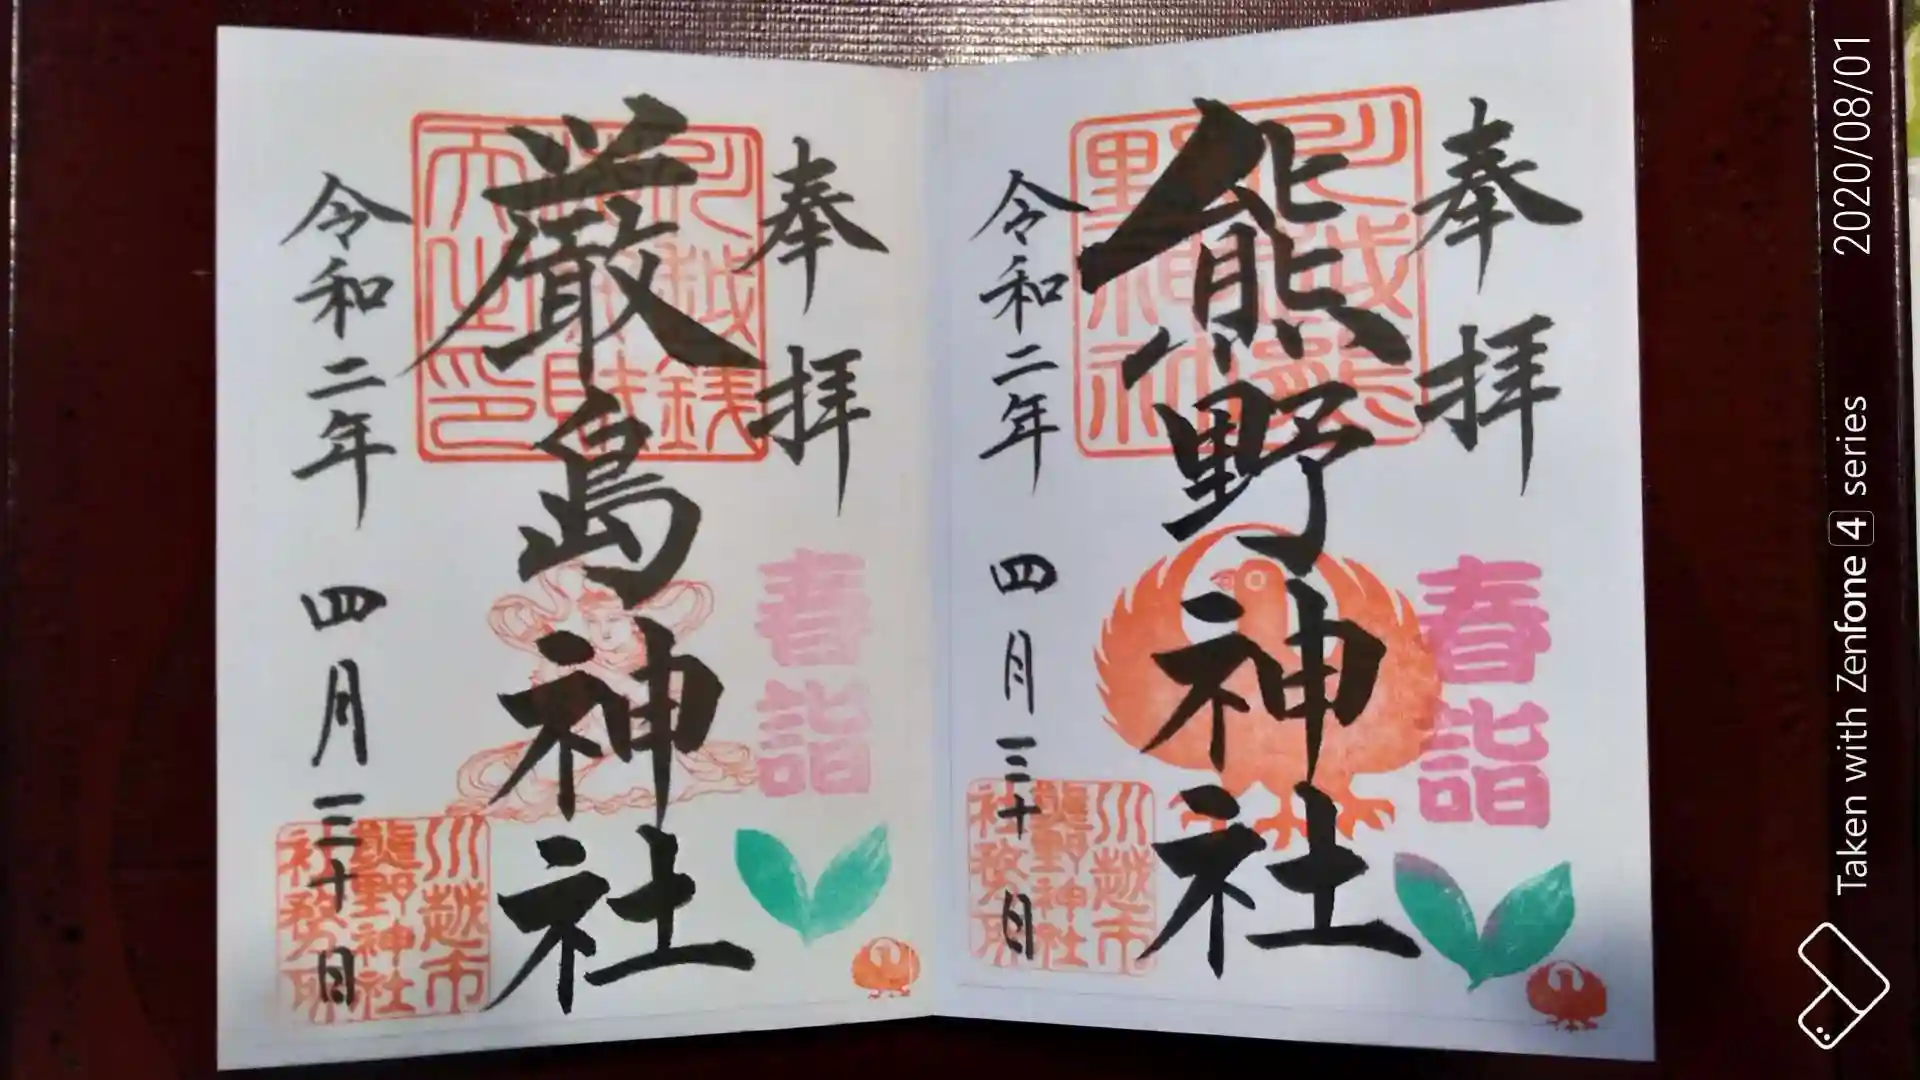 奉拝
川越熊野神社
熊野神社
春詣
令和二年 四月三十日
川越市
熊野神社
社務所
奉拝
川越銭
厳島神社
春詣
令和二年 四月三十日
川越市
熊野神社
社務所
2020/08/01
Taken with Zenfone 4 series